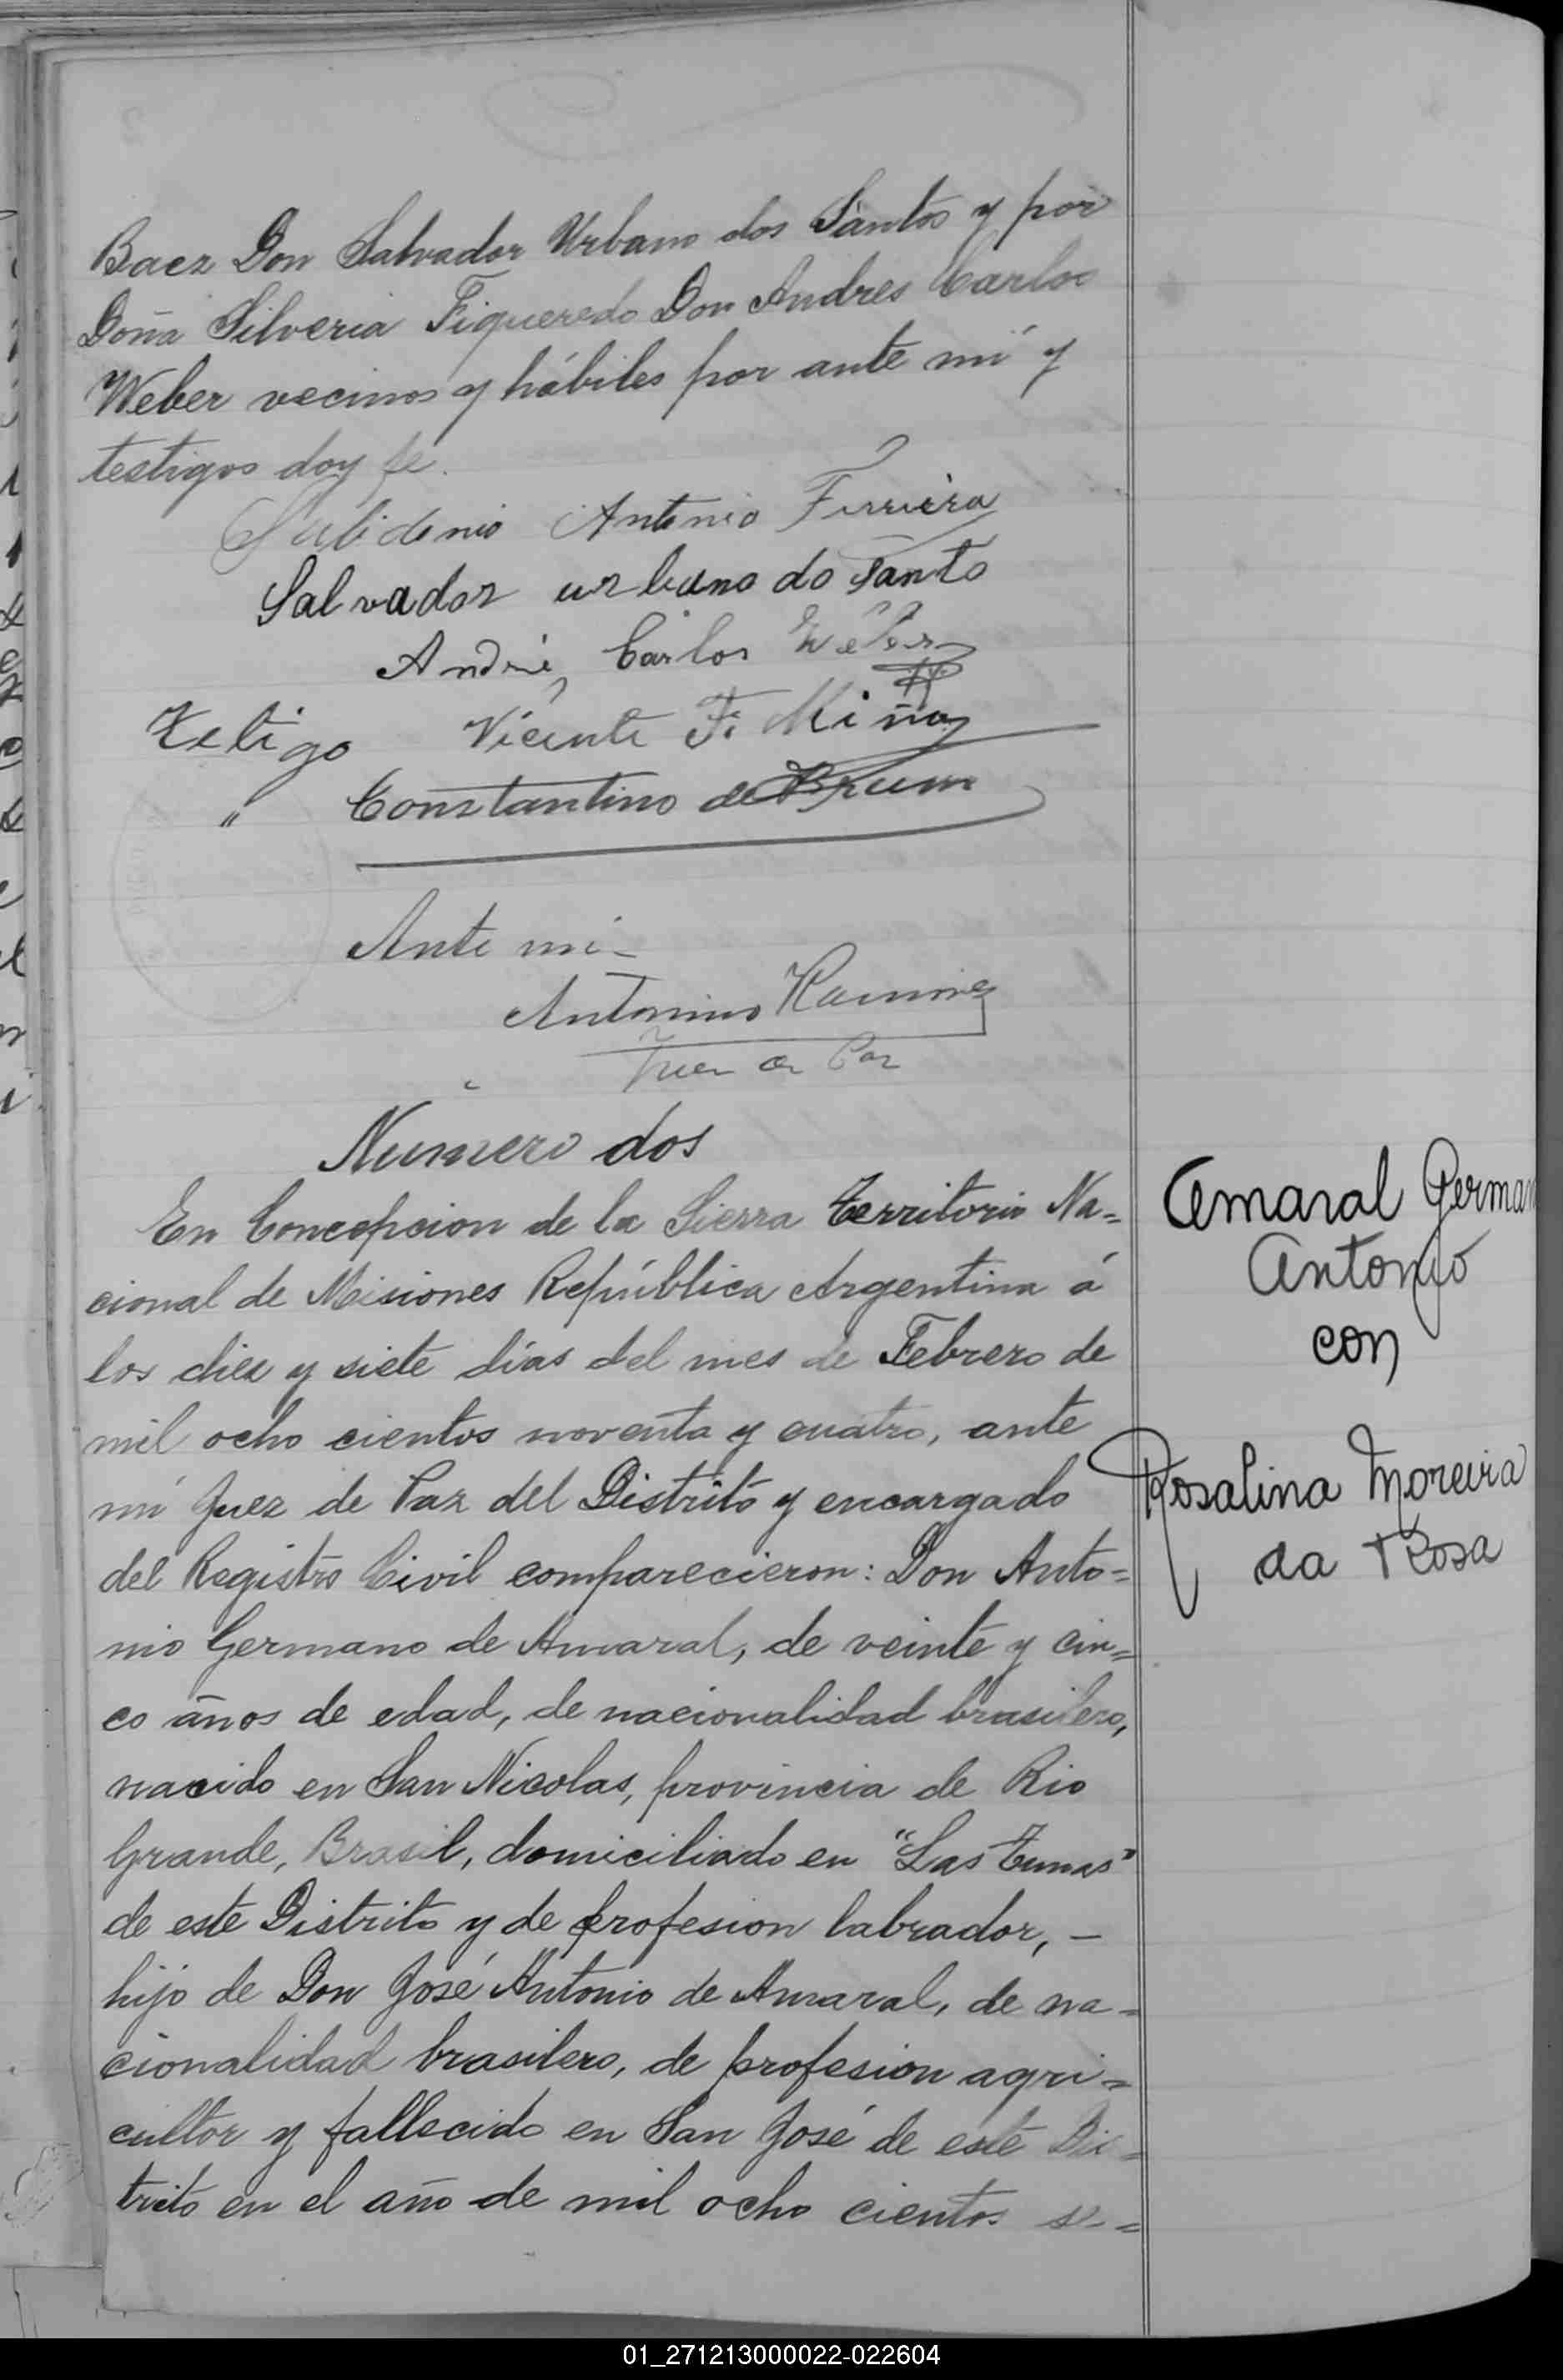 Baez Don Salvador Urbano dos Santos y por
Doña Silveria Figueredo Don Andres Carlos
Weber vecinos y hábiles por ante mi y
testigos doy fe.
Antonio Ferreira
Salvador urbano do Santo
André Carlos Weber
Testigo Vicente F. Miño
" Constantino de Brum
Ante mi
Antonino Ramirez
Juez de Paz
Numero dos
En Concepcion de la Sierra Territorio Na=
cional de Misiones República Argentina á
los diez y siete días del mes de Febrero de
mil ocho cientos noventa y cuatro, ante
mi Juez de Paz del Distrito y encargado
del Registro Civil comparecieron: Don Anto=
nio Germano de Amaral, de veinte y cin=
co años de edad, de nacionalidad brasilero,
nacido en San Nicolas, provincia de Rio
Grande, Brasil, domiciliado en "Las Tunas"
de este Distrito y de profesion labrador, —
hijo de Don José Antonio de Amaral, de na=
cionalidad brasilero, de profesion agri=
cultor y fallecido en San José de este Dis=
trito en el año de mil ocho cientos se=
Amaral German
Antonio
con
Rosalina Moreira
da Rosa
01_271213000022-022604